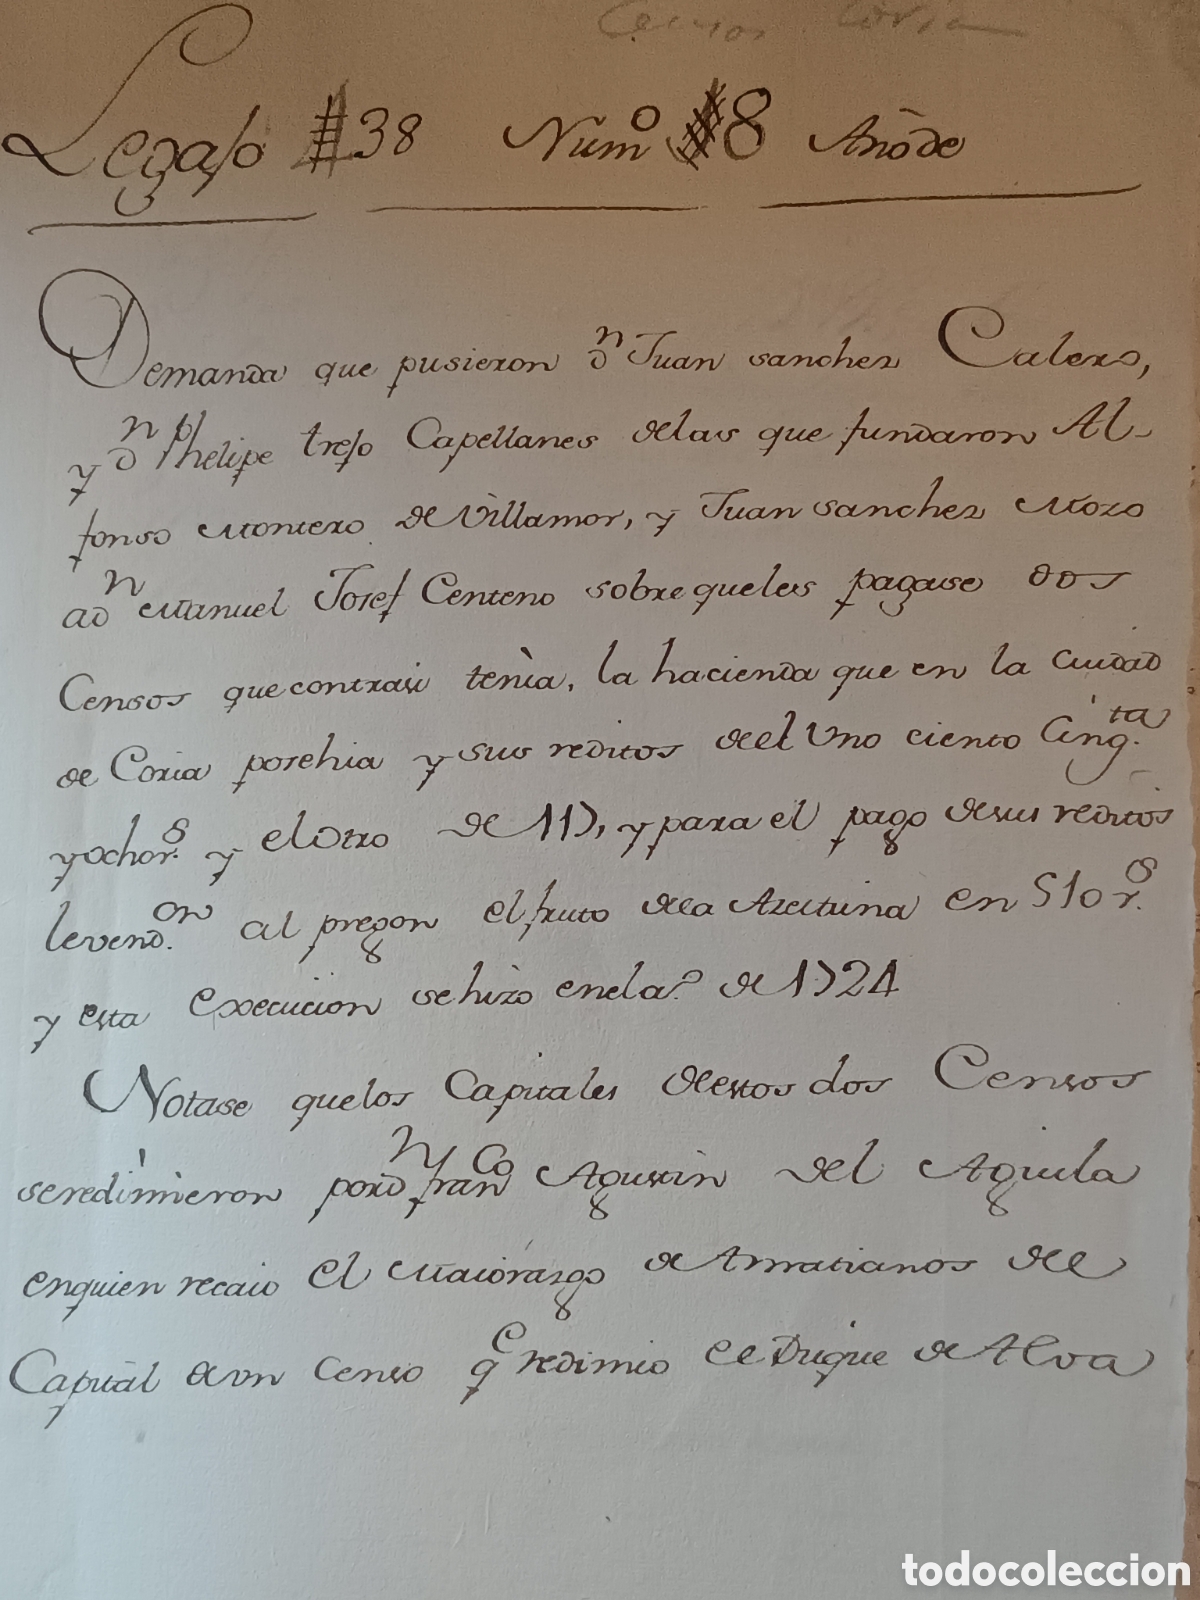 Censos Coria
Legajo 38 Num.º 8 Año de
Demanda que pusieron Dn Juan sanchez Calero,
y Dn Phelipe trejo Capellanes delas que fundaron Al-
fonso Montero de Villamor, y Juan sanchez Mozo
a Dn Manuel Josef Centeno sobre queles pagase dos
Censos quecontrasi tenia, la hacienda que en la ciudad
de Coria posehia y sus reditos deel Uno ciento Cinq.ta
y ochor.s y elotro de 117, y para el pago desus reditos
levend.on al pregon el fruto dela Azeituna en 510 r.s
y esta execucion sehizo enela.º de 1724
Notase quelos Capitales destos dos Censos
seredimieron por Dn Franco Agustin del Aguila
enquien recaio el Maiorazgo de Amatianos del
Capital deun Censo qe redimio el Duque de Alva
todocoleccion